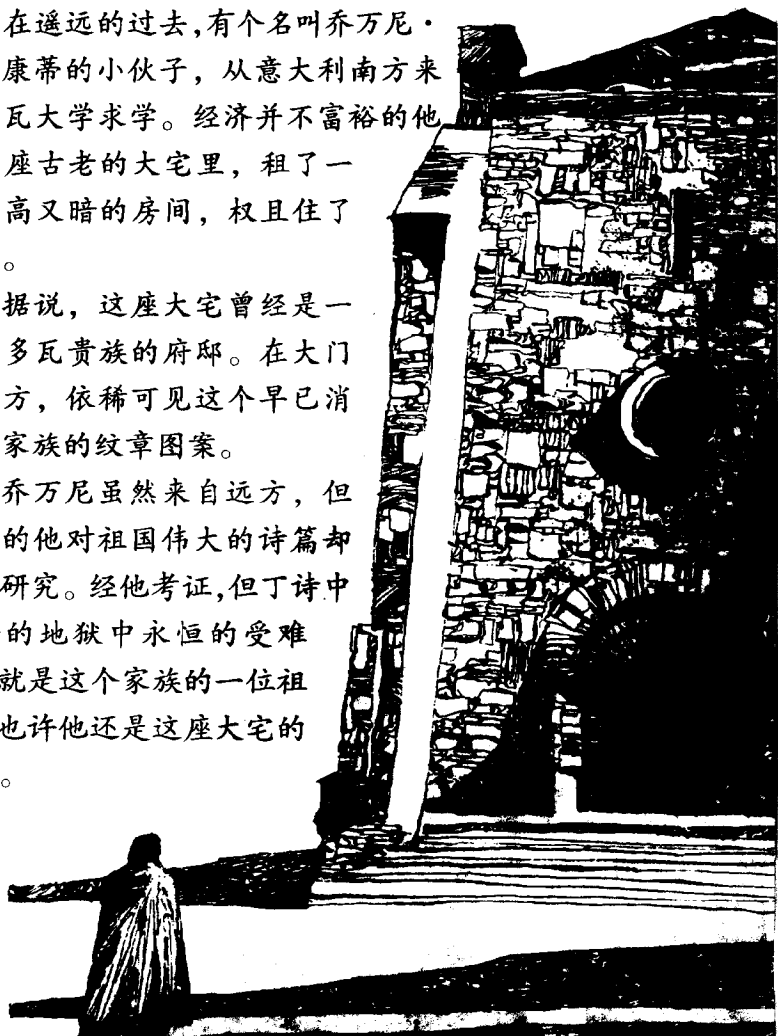 在遥远的过去,有个名叫乔万尼·
康蒂的小伙子，从意大利南方来
瓦大学求学。经济并不富裕的他
座古老的大宅里，租了一
高又暗的房间，权且住了
。
据说，这座大宅曾经是一
多瓦贵族的府邸。在大门
方，依稀可见这个早已消
家族的纹章图案。
乔万尼虽然来自远方，但
的他对祖国伟大的诗篇却
研究。经他考证,但丁诗中
的地狱中永恒的受难
就是这个家族的一位祖
也许他还是这座大宅的
。